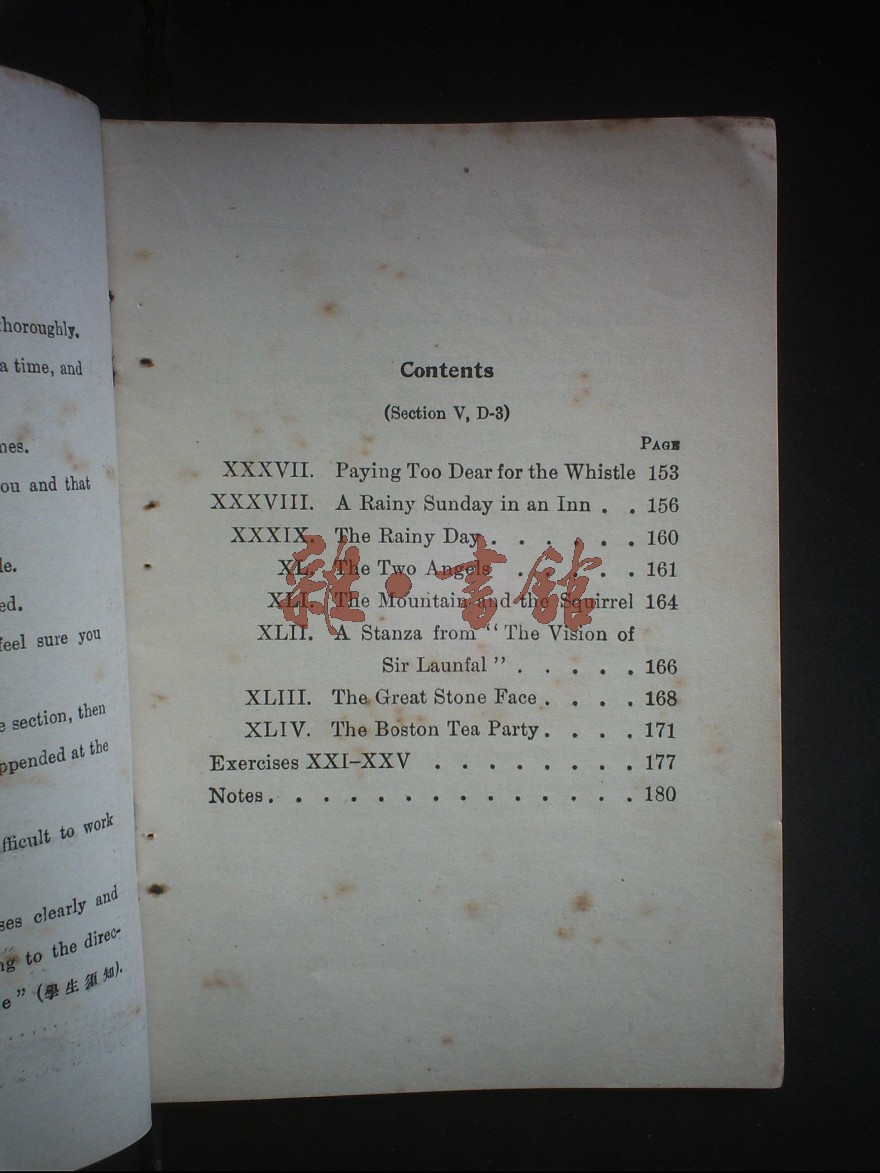 thoroughly.
a time, and
nes.
ou and that
le.
ed.
feel sure you
e section, then
ppended at the
fficult to work
ses clearly and
ng to the direc-
e” (學生須知).
Contents
(Section V, D-3)
PAGE
XXXVII. Paying Too Dear for the Whistle 153
XXXVIII. A Rainy Sunday in an Inn . . 156
XXXIX. The Rainy Day . . . . . . 160
XL. The Two Angels . . . . . 161
XLI. The Mountain and the Squirrel 164
XLII. A Stanza from “The Vision of
Sir Launfal” . . . . . 166
XLIII. The Great Stone Face . . . . 168
XLIV. The Boston Tea Party . . . . 171
Exercises XXI–XXV . . . . . . . . 177
Notes . . . . . . . . . . . . . . 180
雜·書館